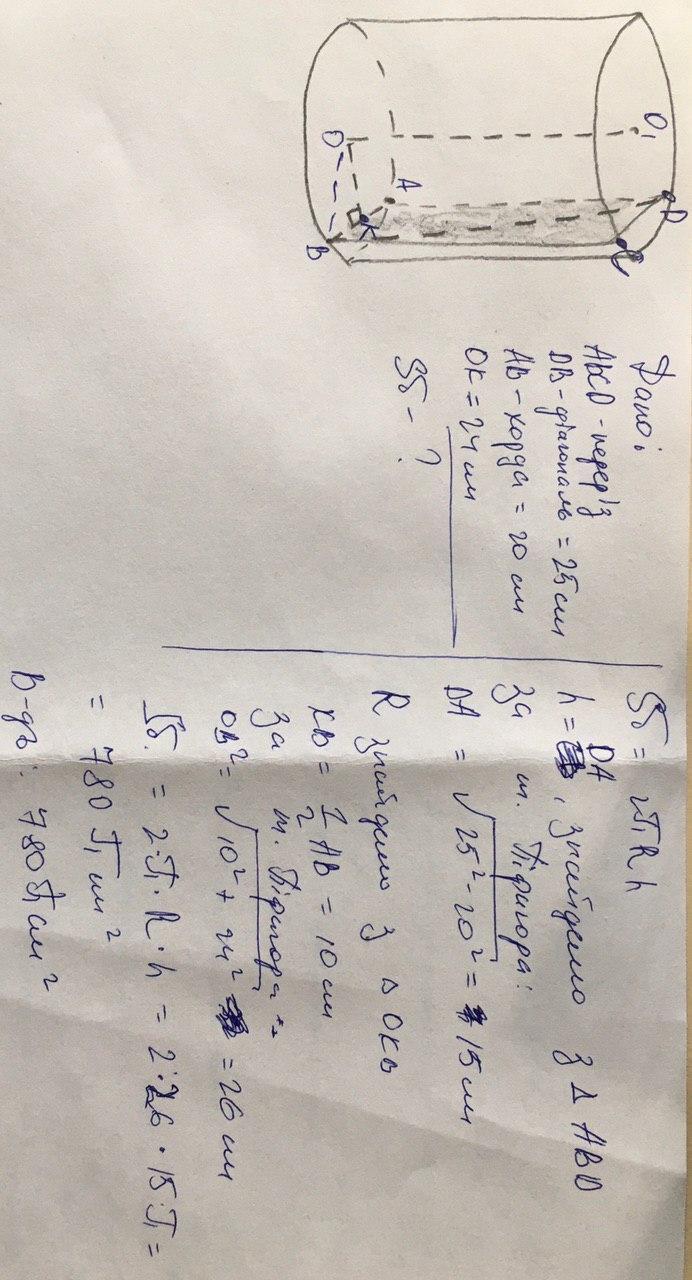 O₁
O
A
D
K
B
C
Дано:
ABCD - переріз
DB - діагональ = 25 см
AB - хорда = 20 см
OK = 24 см
Sб - ?
Sб = 2πRh
h = DA, знайдемо з Δ ABD
за т. Піфагора:
DA = √25² - 20² = 15 см
R знайдемо з Δ OKB
KB = 1/2 AB = 10 см
за т. Піфагора:
OB² = √10² + 24² = 26 см
Sб. = 2·π·R·h = 2·26·15·π =
= 780 π см²
В-дь: 780 π см²